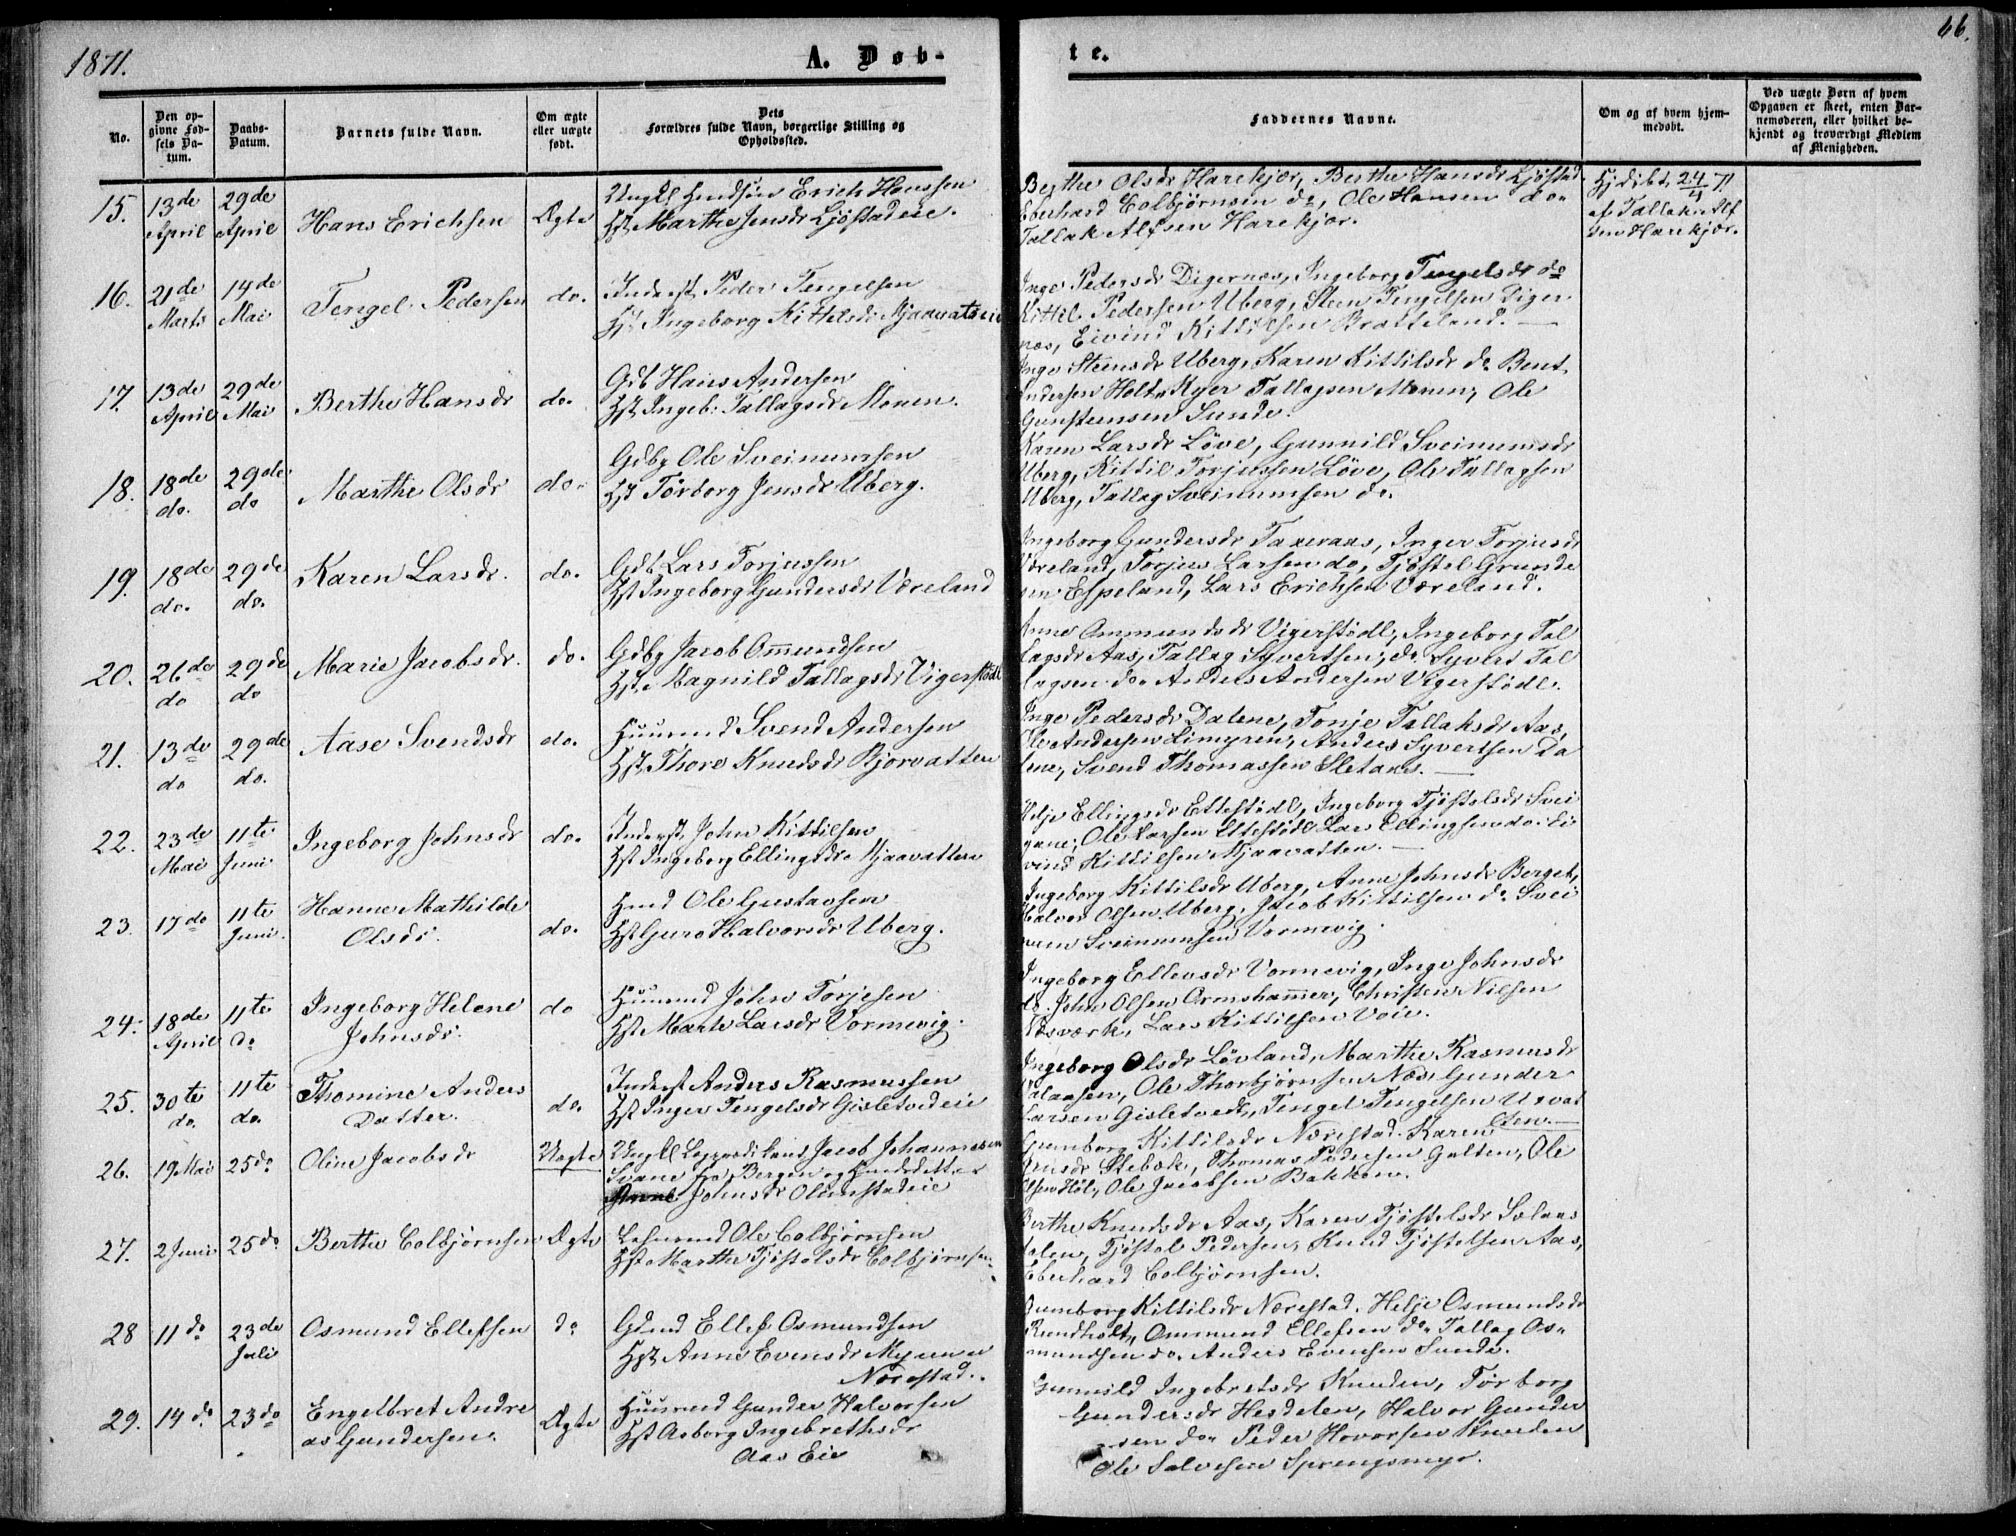 1871.
A. Døb-
te.
66.
No.
Den op-
givne Fød-
sels Da-
tum.
Daabs-
Datum.
Barnets fulde Navn.
Om ægte
eller uægte
født.
Dets
Forældres fulde Navn, borgerlige Stilling og
Opholdssted.
Faddernes Navne.
Om og af hvem hjem-
medøbt.
Ved uægte Børn af hvem
Opgaven er skeet, enten Bar-
nemoderen, eller hvilket be-
kjendt og troværdigt Medlem
af Menigheden.
15. 13de April 29de April Hans Erichsen Ægte
Erich Hanssen
Hst Marthe Jensdr Ljøstadeie.
Berthe Olsdr Harekjær, Berthe Hansdr Ljøstad
Eberhard Colbjørnsen do, Ole Hansen do
Tallak Alfsen Harekjær.
Hjdøbt 24/4 71
af Tallak Alf
sen Harekjær.
16. 21de Marts 14de Mai Tengel Pedersen do.
Inderst Peder Tengelsen
Hst Ingeborg Kittelsdr Mjaavatneie
Inge Pedersdr Digernæs, Ingeborg Tengelsdr do
Kittil Pedersen Uberg, Steen Tengelsen Diger
næs, Eivind Kittilsen Bratteland.
17. 13de April 29de Mai Berthe Hansdr do.
Gdb Hans Andersen
Hst Ingeb: Tallagsdr Moren.
Inge Steensdr Uberg, Karen Kittilsdr do Bent
Andersen Holt, Tallagsen Moren, Ole
Gunsteensen Sunde.
18. 18de do. 29de do Marthe Olsdr do.
Gdbg Ole Sveinumsen
Hst Tørborg Jensdr Uberg.
Karen Larsdr Løve, Gunnild Sveinumsdr
Uberg, Kittil Torjussen Løve, Ole Tallagsen
Uberg, Tallag Sveinumsen do.
19. 18de do. 29de do. Karen Larsdr. do.
Gdb Lars Torjussen
Hst Ingeborg Gundersdr Væreland
Ingeborg Gundersdr Taxeraas, Inger Torjusdr
Væreland, Torjus Larsen do, Tjøstel Grunde
sen Espeland, Lars Erichsen Væreland.
20. 26de do 29de do Marie Jacobsdr. do.
Gdbg Jacob Ommundsen
Hst. Magnild Tallagsdr Vigerstødl
Anne Ommundsdr Vigerstødl, Ingeborg Tal
lagsdr Aas, Tallag Syvertsen, do. Syvert Tal
lagsen do Anders Andersen Vigerstødl.
21. 13de do 29de do. Aase Svendsdr do.
Huusmd Svend Andersen
Hst. Thore Knudsdr Bjorvatten
Inge Pedersdr Dalene, Tonje Tallaksdr Aas,
Ole Andersen Limyren, Anders Syvertsen Da
lene, Svend Thomassen Sletaas.
22. 23de Mai 11te Juni Ingeborg Johnsdr do.
Inderst John Kittilsen
Hst Ingeborg Ellingsdr Mjaavatten
Helje Ellingsdr Ettestødl, Ingeborg Tjøstelsdr Svei
gane, Ole Larsen Ettestødl Lars Ellingsen do. Ei
vind Kittilsen Mjaavatten.
23. 17de 11te Juni. Hanne Mathilde
Olsdr. do.
Hmd Ole Gustavsen
Hst Guro Halvorsdr Uberg.
Ingeborg Kittilsdr Uberg, Anne Johnsdr Berget,
Halvor Olsen Uberg, Jacob Kittilsen do Svei
num Sveinumsen Vormevig.
24. 18de April 11te do Ingeborg Helene
Johnsdr. do
Huusmd John Torjesen
Hst Marte Larsdr Vormevig.
Ingeborg Ellevsdr Vormevig, Inge Johnsdr
do. John Olsen Ormshammer, Christen Nilsen
Næsværk, Lars Kittilsen Voie.
25. 30te do. 11te do. Thomine Anders
Datter. do.
Inderst Anders Rasmussen
Hst Inger Tengelsdr Gisletvedeie
Ingeborg Olsdr Løvland, Marthe Rasmusdr
Ole Thorbjørnsen Næs, Gunder
Larsen Gisletvedt, Tengel Tengelsen Urvat
26. 19 Mai 25do Oline Jacobsdr Uægte
Ungkl Jacob Johannesen
Svane fra Bergen og
Anne Johnsdr Olimstadeie
Gumborg Kittilsdr Nærestad. Karen
Jensdr Stebæk, Thomas Pedersen Galten, Ole
Olsen Høl, Ole Jacobsen Bakken.
27. 2 Juni 25do Berthe Colbjørnsen Ægte
Ole Colbjørnsen
Hst Marthe Tjøstelsdr Colbjørnsen
Berthe Knudsdr Aas, Karen Tjøstelsdr Solaas
dalen, Tjøstel Pedersen, Knud Tjøstelsen Aas,
Eberhard Colbjørnsen.
28 11do 23de Juli Osmund Ellefsen do
Gdmd Ellef Osmundsen
Hst Anne Evensdr Myren
Nærestad.
Gumborg Kittilsdr Nærestad. Helje Osmundsdr
Rundholt, Ommund Ellefsen do Tallag Os-
mundsen do. Anders Evensen Sunde.
29. 14do 23do Engelbret Andre
as Gundersen. Ægte
Huusmd Gunder Halvorsen
Hst Aaborg Ingebrethsdr
Aas Eie
Gunnild Ingebretsdr Knuden, Tørborg
Gundersdr Hesdelen, Halvor Gunder
sen do Peder Hovorsen Knuden
Ole Salvesen Sprengsmyr.